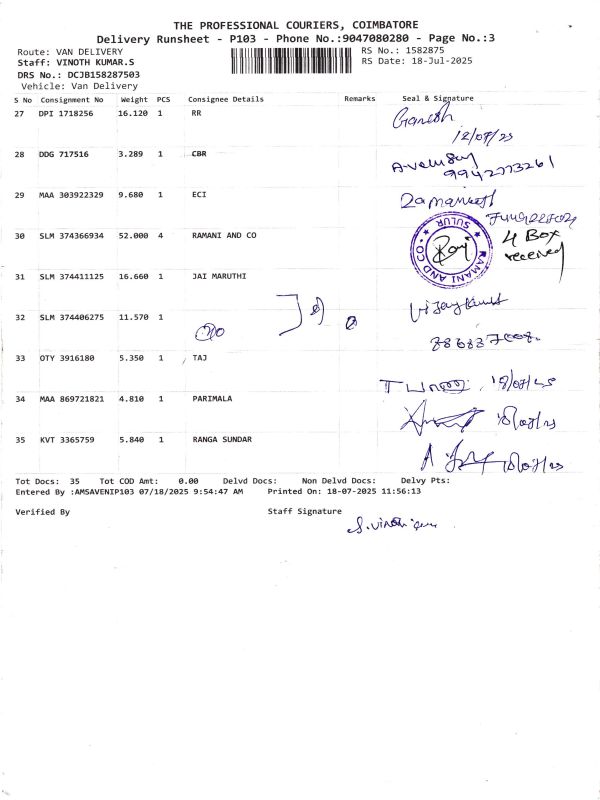 THE PROFESSIONAL COURIERS, COIMBATORE
Delivery Runsheet - P103 - Phone No.:9047080280 - Page No.:3
Route: VAN DELIVERY RS No.: 1582875
Staff: VINOTH KUMAR.S RS Date: 18-Jul-2025
DRS No.: DCJB158287503
Vehicle: Van Delivery
S No Consignment No Weight PCS Consignee Details Remarks Seal & Signature
27 DPI 1718256 16.120 1 RR Ganesh
12/07/25
28 DDG 717516 3.289 1 CBR
9942773261
29 MAA 303922329 9.680 1 ECI
30 SLM 374366934 52.000 4 RAMANI AND CO RAMANI AND CO. SULUR 4 Box
received
31 SLM 374411125 16.660 1 JAI MARUTHI
32 SLM 374406275 11.570 1 Vijaykumar
33 OTY 3916180 5.350 1 TAJ
34 MAA 869721821 4.810 1 PARIMALA
35 KVT 3365759 5.840 1 RANGA SUNDAR
Tot Docs: 35 Tot COD Amt: 0.00 Delvd Docs: Non Delvd Docs: Delvy Pts:
Entered By :AMSAVENIP103 07/18/2025 9:54:47 AM Printed On: 18-07-2025 11:56:13
Verified By Staff Signature